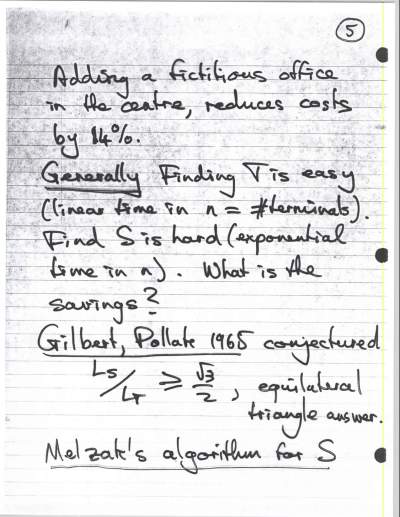 5
Adding a fictitious office
in the centre, reduces costs
by 14%.
Generally Finding T is easy
(linear time in n = #terminals).
Find S is hard (exponential
time in n). What is the
savings?
Gilbert, Pollak 1968 conjectured
Ls/LT ≥ √3/2, equilateral
triangle answer.
Melzak's algorithm for S